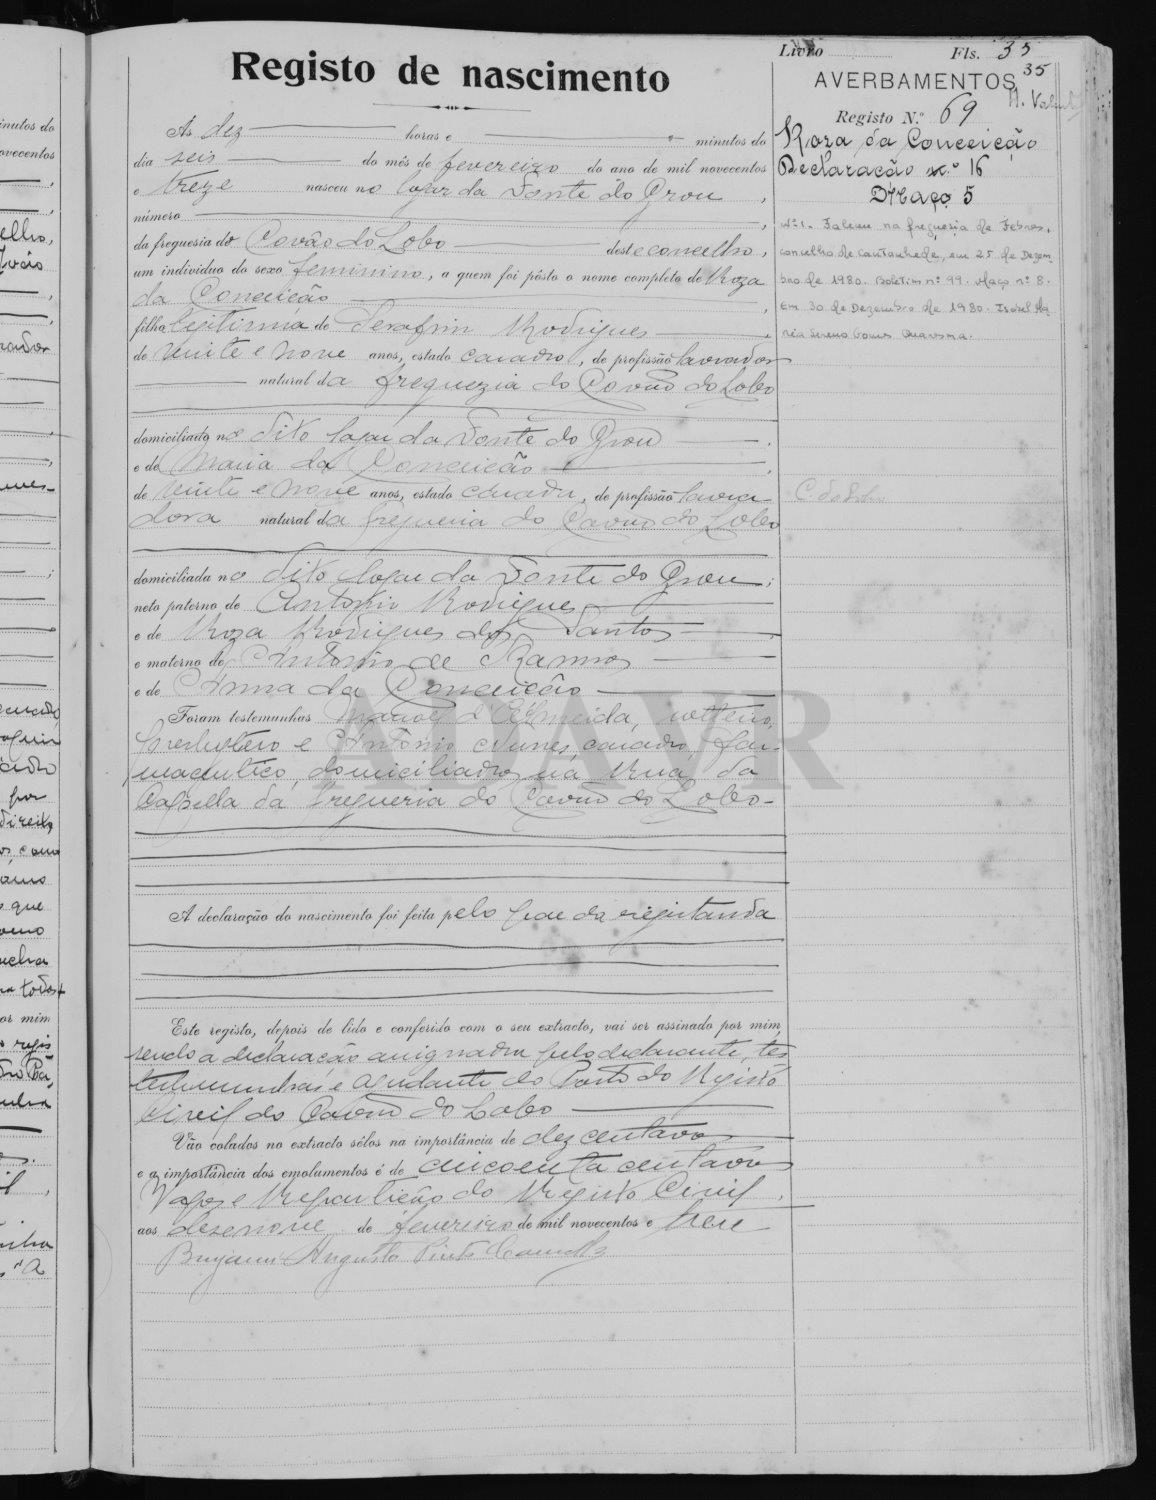 Livro Fls. 35
35
Registo de nascimento
Às dez horas e minutos do
dia seis do mês de fevereiro do ano de mil novecentos
e treze nasceu no logar da Fonte do Grou,
número ,
da freguesia do Covão do Lobo deste concelho,
um indivíduo do sexo feminino, a quem foi pôsto o nome completo de Roza
da Conceição
filha legitima de Serafim Rodrigues,
de vinte e nove anos, estado casado, de profissão lavrador
natural da freguezia do Covão do Lobo
domiciliado no dito logar da Fonte do Grou.
e de Maria da Conceição,
de vinte e nove anos, estado casada, de profissão lavra-
dora natural da freguesia do Covão do Lobo
domiciliada no dito logar da Fonte do Grou;
neto paterno de António Rodrigues
e de Roza Rodrigues dos Santos
e materno de António de Ramos
e de Anna da Conceição
Foram testemunhas Manoel d'Almeida, solteiro,
presbytero e António Nunes, casado, far-
maceutico, domiciliados na Rua da
Capella da freguesia do Covão do Lobo-
A declaração do nascimento foi feita pelo pae da registanda
Este registo, depois de lido e conferido com o seu extracto, vai ser assinado por mim,
sendo a declaração assignada pelo declarante, tes
temunhas e ajudante do Posto do Registo
Civil do Covão do Lobo
Vão colados no extracto sêlos na importância de dez centavos
e a importância dos emolumentos é de cincoenta centavos
Vagos e Repartição do Registo Civil,
aos desenove de fevereiro de mil novecentos e treze
Benjamin Augusto Pinto
AVERBAMENTOS
Registo N.º 69
Roza da Conceição
Declaração n.º 16
Maço 5
Nº 1. Faleceu na freguesia de Febres,
concelho de Cantanhede, em 25 de Dezem-
bro de 1980. Boletim nº 99. Maço nº 8.
Em 30 de Dezembro de 1980. Isabel Ma
ria
C. do Lobo
ADAVR